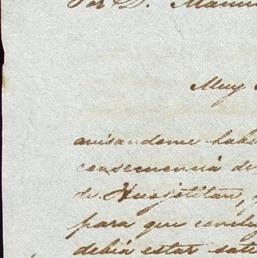 Por D. Manu
Muy
avisandome hab
consecuencia de
de Huejotitan,
para que conclu
debia estar sat